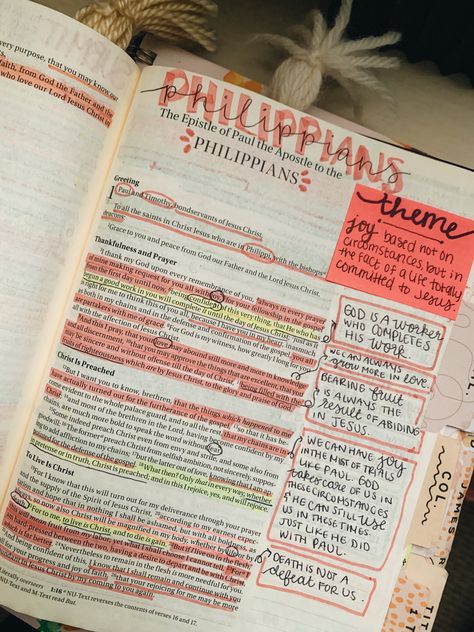 very purpose, that you may know
faith, from God the Father and the
who love our Lord Jesus Christ
PHILIPPIANS
philippians
The Epistle of Paul the Apostle to the
PHILIPPIANS
Greeting
1 Paul and Timothy, bondservants of Jesus Christ,
To all the saints in Christ Jesus who are in Philippi, with the bishops
deacons:
2Grace to you and peace from God our Father and the Lord Jesus Christ.
Thankfulness and Prayer
3I thank my God upon every remembrance of you, 4always in every
of mine making request for you all with joy, 5for your fellowship in the gospel
from the first day until now, 6being confident of this very thing, that He who has
begun a good work in you will complete it until the day of Jesus Christ; 7just as it
is right for me to think this of you all, because I have you in my heart, inasmuch
are partakers with me of grace. 8For God is my witness, how greatly I long for
all with the affection of Jesus Christ.
9And this I pray, that your love may abound still more and more in knowledge
and all discernment, 10that you may approve the things that are excellent,
be sincere and without offense till the day of Christ, 11being filled with the
of righteousness which are by Jesus Christ, to the glory and praise of God.
Christ Is Preached
12But I want you to know, brethren, that the things which happened to me
have actually turned out for the furtherance of the gospel, 13so that it has be-
come evident to the whole palace guard, and to all the rest, that my chains are in
Christ; 14and most of the brethren in the Lord, having become confident by my
chains, are much more bold to speak the word without fear.
15Some indeed preach Christ even from envy and strife, and some also from
goodwill: 16The former preach Christ from selfish ambition, not sincerely, suppos-
ing to add affliction to my chains; 17but the latter out of love, knowing that I am
appointed for the defense of the gospel. 18What then? Only that in every way, whether
in pretense or in truth, Christ is preached; and in this I rejoice, yes, and will rejoice.
To Live Is Christ
19For I know that this will turn out for my deliverance through your prayer
and the supply of the Spirit of Jesus Christ, 20according to my earnest expectation
and hope that in nothing I shall be ashamed, but with all boldness, as
always, so now also Christ will be magnified in my body, whether by life or by
death. 21For to me, to live is Christ, and to die is gain. 22But if I live on in the flesh,
this will mean fruit from my labor; yet what I shall choose I cannot tell. 23For I
am hard pressed between the two, having a desire to depart and be with Christ,
which is far better. 24Nevertheless to remain in the flesh is more needful for you.
25And being confident of this, I know that I shall remain and continue with you
all for your progress and joy of faith, 26that your rejoicing for me may be more
abundant in Jesus Christ by my coming to you again.
Literally overseers 1:16 NU-Text reverses the contents of verses 16 and 17.
NU-Text and M-Text read But.
theme
joy based not on
circumstances but in
the fact of a life totally
committed to Jesus.
GOD IS A WORKER
WHO COMPLETES
HIS WORK.
WE CAN ALWAYS
GROW MORE IN LOVE.
BEARING fruit
IS ALWAYS THE
RESULT OF ABIDING
IN JESUS.
WE CAN HAVE JOY
IN THE MIDST OF TRIALS
LIKE PAUL. GOD
TAKES CARE OF US IN
THOSE CIRCUMSTANCES
& HE CAN STILL USE
US IN THESE TIMES.
JUST LIKE HE DID
WITH PAUL.
DEATH IS NOT A
defeat FOR US.
COL.
JAMES